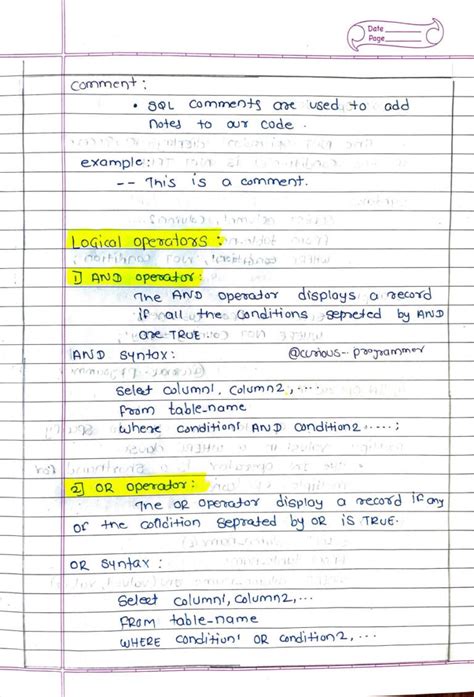 Date
Page
Comment:
• SQL comments are used to add
notes to our code.
example:
-- This is a comment.
Logical operators:
1] AND operator:
The AND operator displays a record
if all the conditions sepreted by AND
are TRUE.
AND Syntax:
@curious-programmer
Select column1, column2, ....
From table-name
Where condition1 AND condition2.....;
2] OR operator:
The OR operator display a record if any
of the condition seprated by OR is TRUE.
OR Syntax:
Select column1, column2,...
FROM table-name
WHERE condition1 OR condition2,...